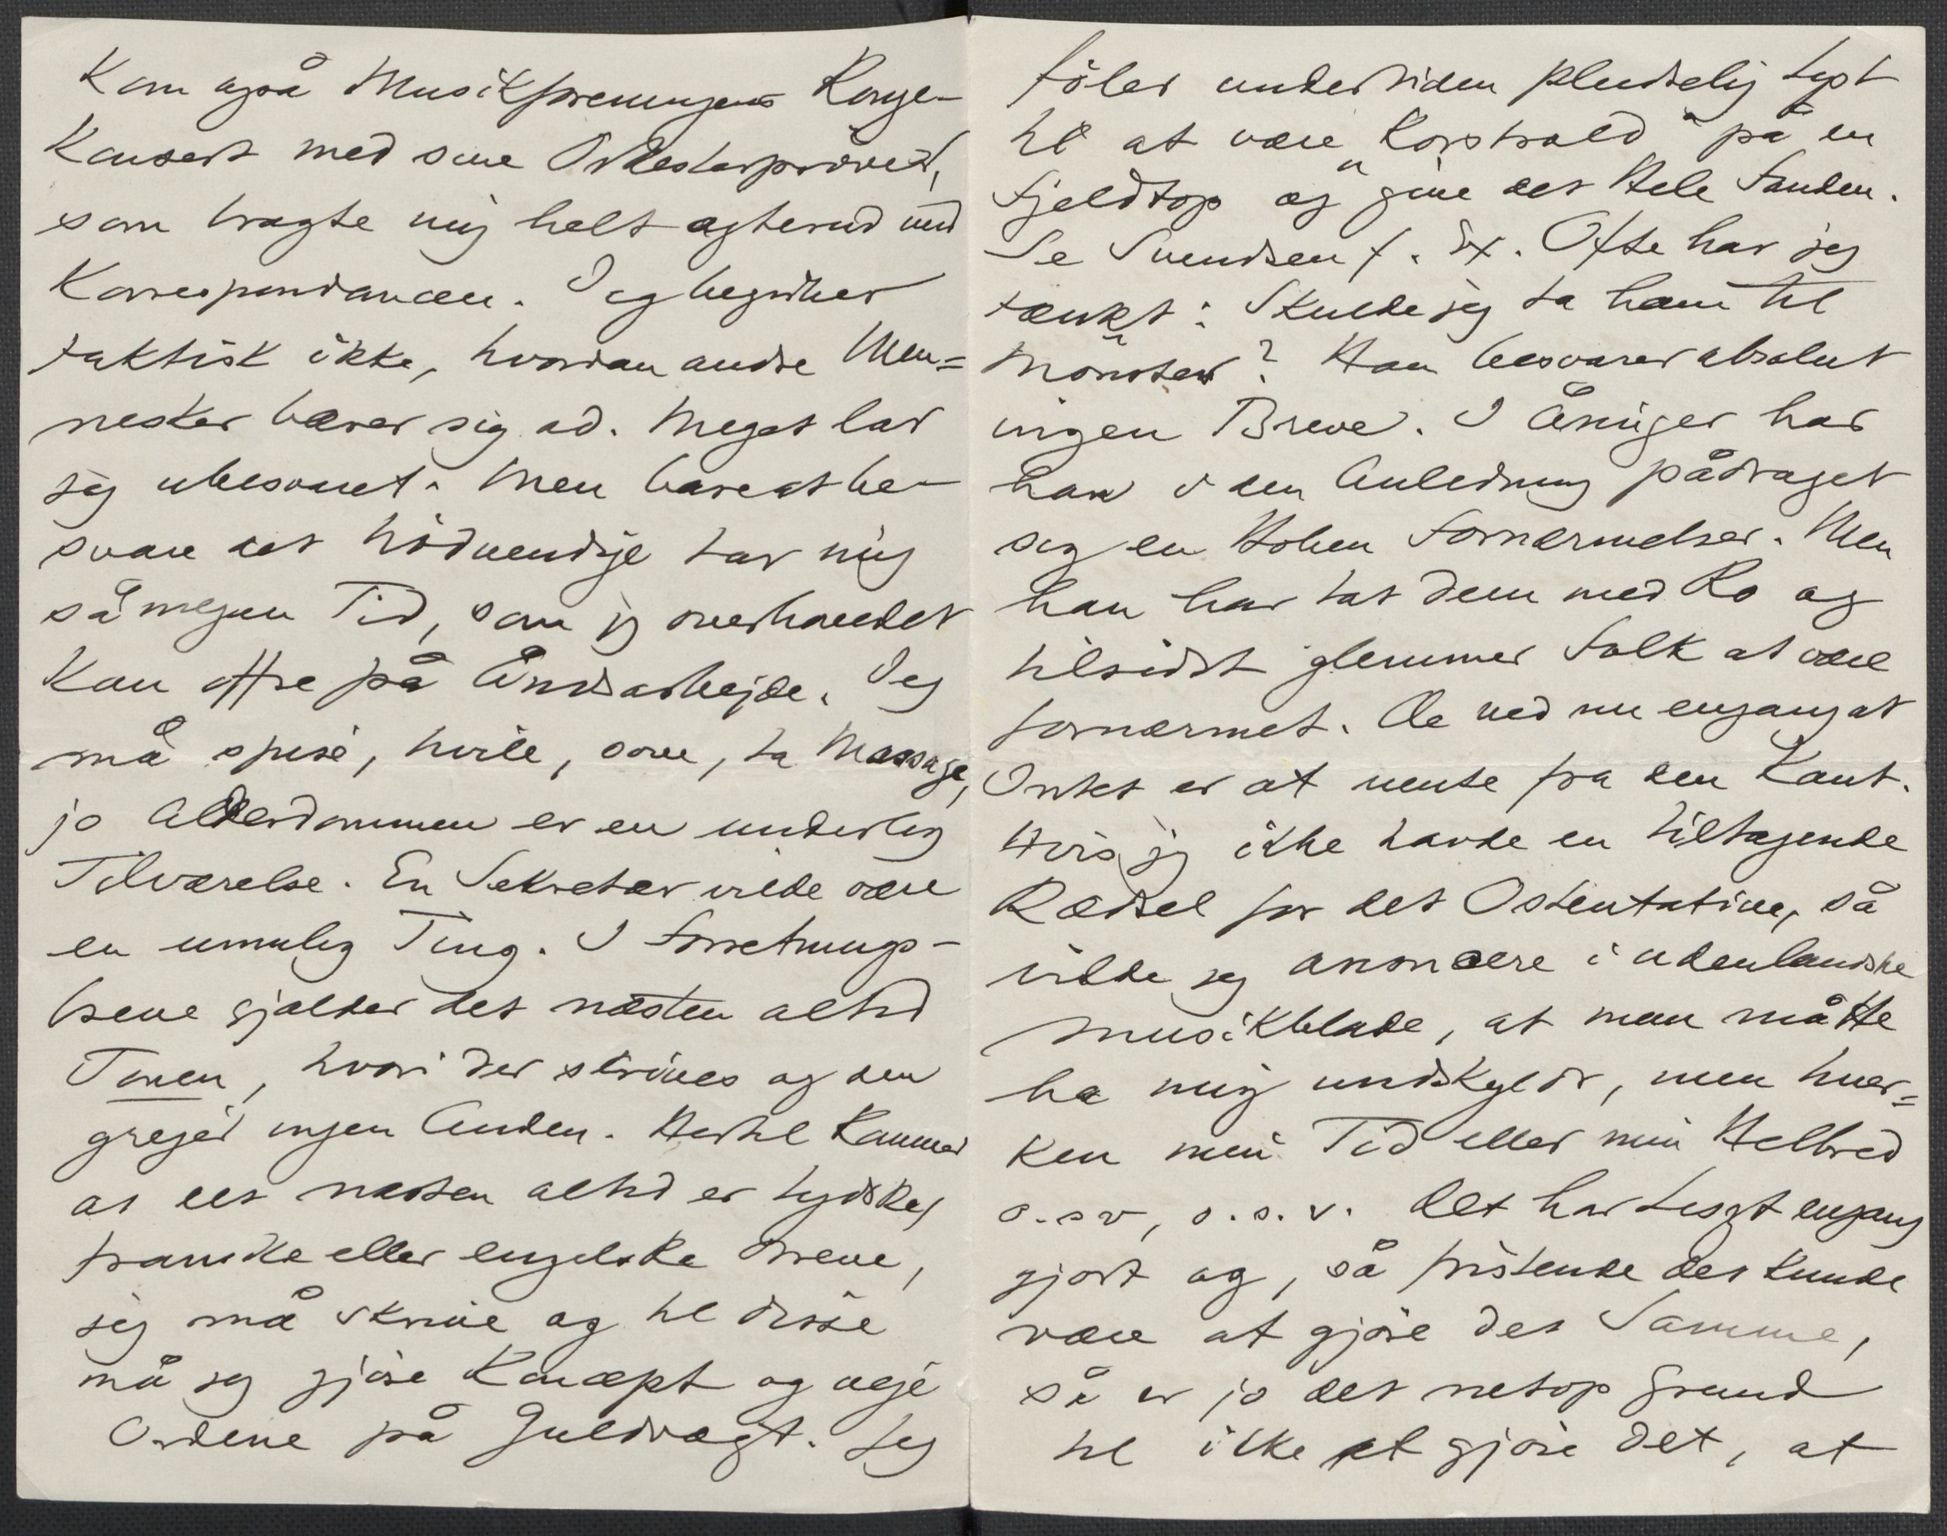 Kom også Musikforeningens Konge-
Konsert med sine Orkesterprøver,
som bragte mig helt agterud med
Korrespondancen. Jeg begriber
faktisk ikke, hvordan andre Men=
nesker bærer sig ad. Meget lar
jeg ubesvaret. Men bare at be-
svare det Nødvendige tar mig
så megen Tid, som jeg overhovedet
kan offre på Åndsarbejde. Jeg
må spise, hvile, sove, ta Massage,
jo Alderdommen er en underlig
Tilværelse. En Sekretær vilde være
en umulig Ting. I Forretnings-
breve gjælder det næsten altid
Tonen, hvori der skrives og den
grejer ingen Anden. Hertil kommer
at det næsten altid er tydske,
franske eller engelske Breve,
jeg må skrive og til disse
må jeg gjøre Koncept og veje
Ordene på Guldvægt. Jeg
føler undertiden pludselig Lyst
til at være "Korstrold" på en
Fjeldtop og give det Hele Fanden.
Se Svendsen f. Ex. Ofte har jeg
tænkt: Skulde jeg ta ham til
Mønster? Han besvarer absolut
ingen Breve. I Åringer har
han i den Anledning pådraget
sig en Hoben Fornærmelser. Men
han har tat dem med Ro og
tilsidst glemmer Folk at være
fornærmet. De ved nu engang at
Intet er at vente fra den Kant.
Hvis jeg ikke havde en tiltagende
Rædsel for det Ostentative, så
vilde jeg anoncere i udenlandske
Musikblade, at man måtte
ha mig undskyldt, men hver=
ken min Tid eller min Helbred
o.s v, o. s. v. Det har Liszt engang
gjort og, så fristende det kunde
være at gjøre det Samme,
så er jo det netop Grund
til ikke at gjøre det, at